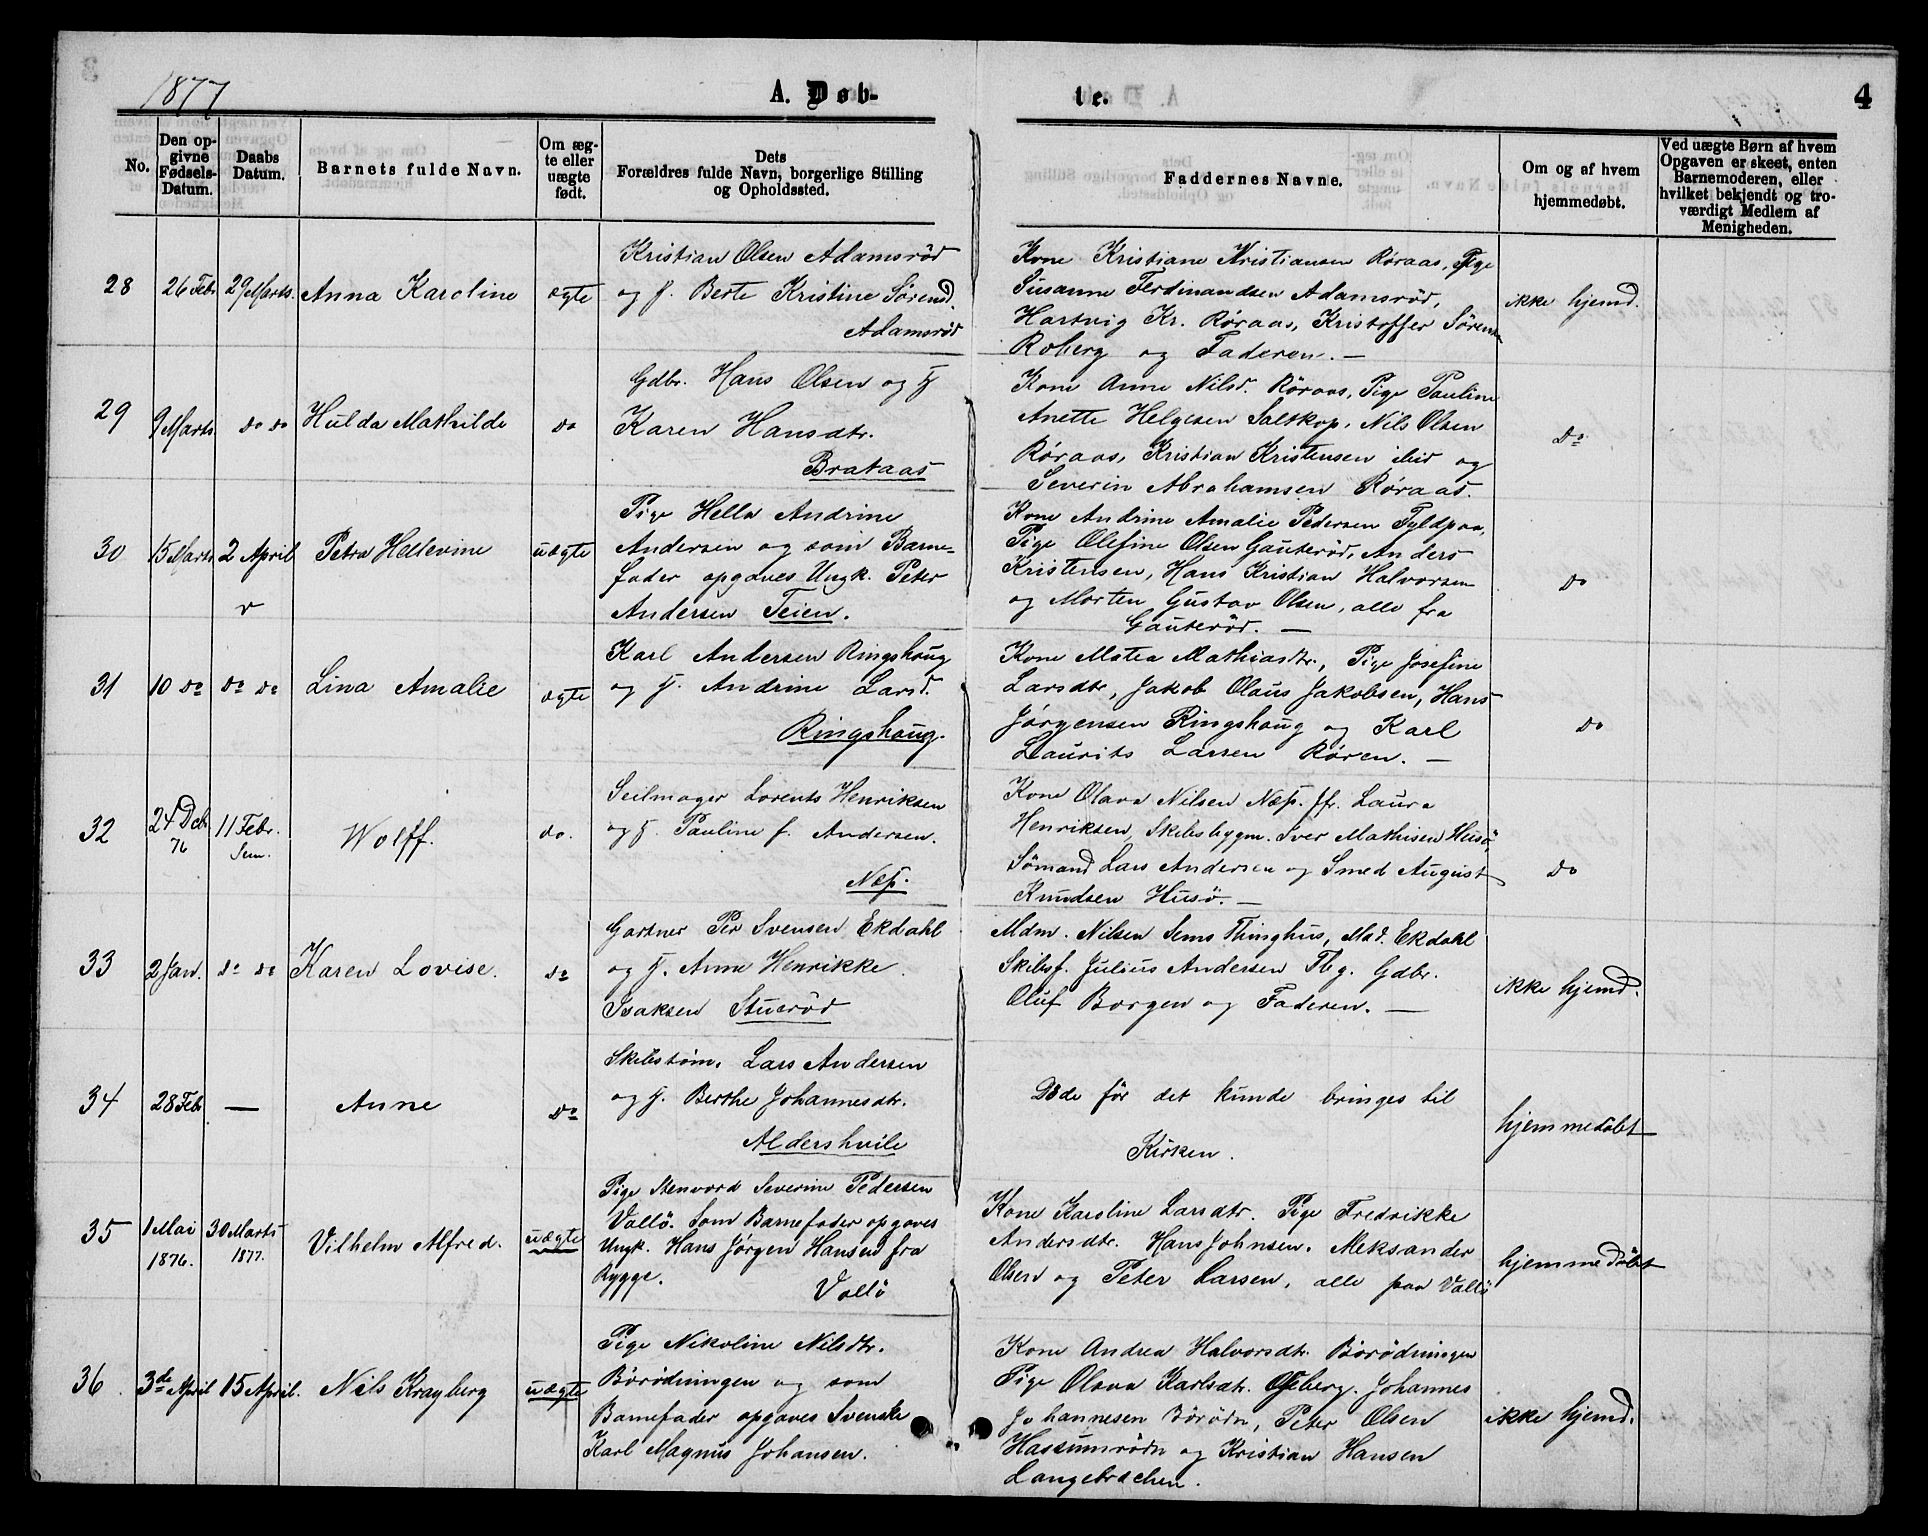 1877
A. Døb-
te.
4
No.
Den op-
givne
Fødsels-
Datum.
Daabs
Datum.
Barnets fulde Navn.
Om æg-
te eller
uægte
født.
Dets
Forældres fulde Navn, borgerlige Stilling
og Opholdssted.
Faddernes Navne.
Om og af hvem
hjemmedøbt.
Ved uægte Børn af hvem
Opgaven er skeet, enten
Barnemoderen, eller
hvilket bekjendt og tro-
værdigt Medlem af
Menigheden.
28 26 Feb. 29 Marts. Anna Karoline ægte
Kristian Olsen Adamsrød
og H. Berte Kristine Sørensd.
Adamsrød
Kone Kristiane Kristiansen Røraas, Pige
Susanne Ferdinandsen Adamsrød,
Hartvig Kr. Røraas, Kristoffer Sørensen
Roberg og Faderen. —
ikke hjemd.
29 9 Marts. do do Hulda Mathilde do
Gdbr. Hans Olsen og H
Karen Hansdtr.
Brataas
Kone Anne Nilsd. Røraas, Pige Pauline
Anette Helgesen Saltkop, Nils Olsen
Røraas, Kristian Kristensen ibid og
Severin Abrahamsen Røraas.
do
30 15 Marts 2 April Petra Hellevine uægte
Pige Hella Andrine
Andersen og som Barne-
fader opgaves Ungk. Peter
Andersen Teien.
Kone Andrine Amalie Pedersen Fyldpaa,
Pige Olefine Olsen Gauterød, Anders
Kristensen, Hans Kristian Halvorsen
og Morten Gustav Olsen, alle fra
Gauterød. —
do
31 10 do do do Lina Amalie ægte
Karl Andersen Ringshoug
og H. Andrine Larsd.
Ringshoug.
Kone Matea Mathiasdtr., Pige Josefine
Larsdtr, Jakob Olaus Jakobsen, Hans
Jørgensen Ringshoug og Karl
Laurits Larsen Røren. —
do
32 24 Deb. 76 11 Febr. Sem. Wolff. do.
Seilmager Lorents Henriksen
og H. Pauline f. Andersen.
Næs.
Kone Olava Nilsen Næs. Jfr. Laura
Henriksen, Skibsbygm. Iver Mathisen Husø,
Sømand Lars Andersen og Smed August
Knudsen Husø. —
do
33 2 Jan. do do Karen Lovise. do
Gartner Per Svensen Ekdahl
og H. Anne Henrikke
Isaksen Stuerød
Mdm. Nilsen Sems Thinghus, Mad. Ekdahl
Skibsf. Julius Andersen Tbg. Gdbr.
Oluf Borgen og Faderen. —
ikke hjemd.
34 28 Feb. — Anne do
Skibstøm. Lars Andersen
og H. Berthe Johannesdtr.
Aldershvile
Døde før det kunde bringes til
Kirken.
hjemmedøbt
35 1 Mai 1876. 30 Marts 1877. Vilhelm Alfred. uægte
Pige Stenvord Severine Pedersen
Vallø. Som Barnefader opgaves
Ungk. Hans Jørgen Hansen fra
Rygge.
Vallø
Kone Karoline Larsdtr. Pige Fredrikke
Andersdtr. Hans Johnsen. Aleksander
Olsen og Peter Larsen, alle paa Vallø
hjemmedøbt
36. 3de April 15 April. Nils Krayberg uægte
Pige Nikoline Nilsdtr.
Børødningen og som
Barnefader opgaves Svenske
Karl Magnus Johansen.
Kone Andrea Halvorsdtr. Børødningen
Pige Olava Karlsdtr. Gjeberg. Johannes
Johannesen Børødn, Peter Olsen
Hassumrødn og Kristian Hansen
Langebrechen.
ikke hjemd.